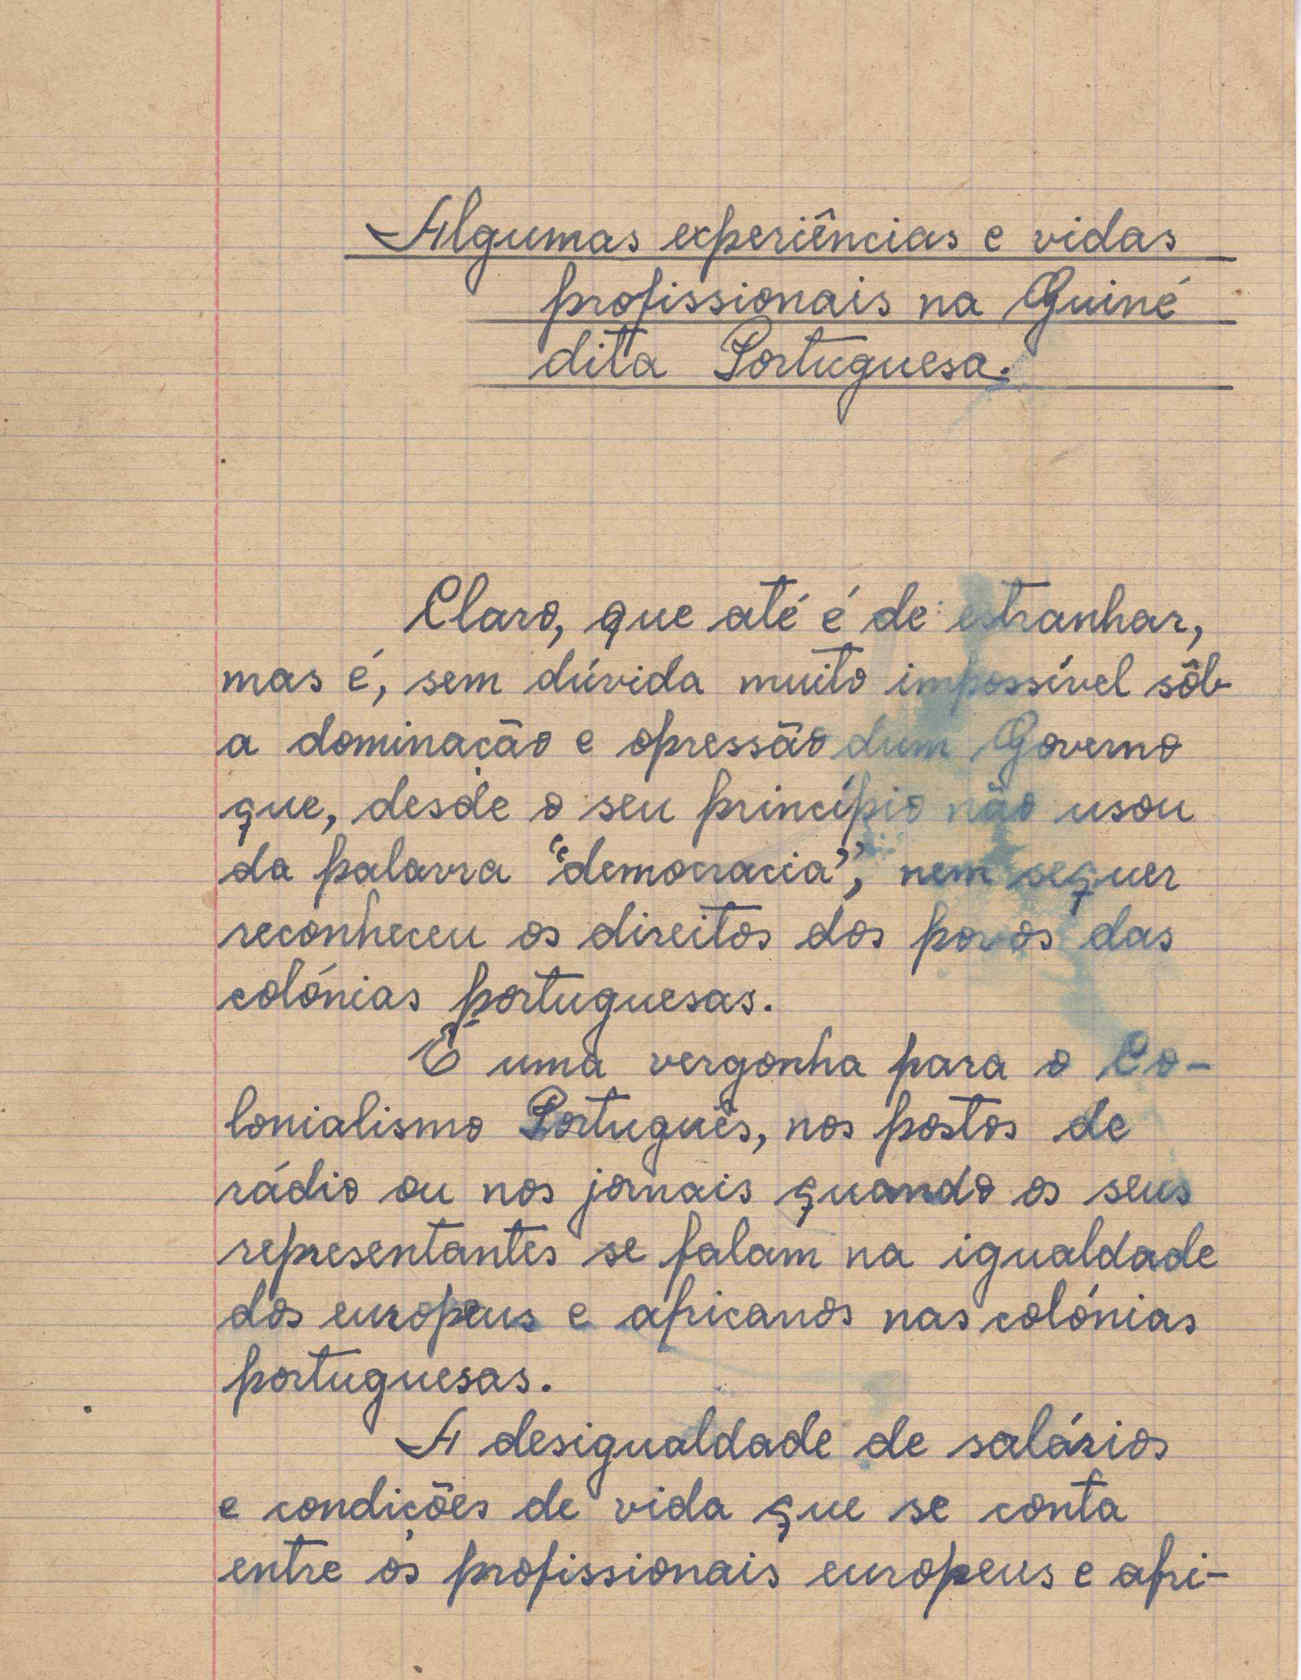 Algumas experiências e vidas
profissionais na Guiné
dita Portuguesa.
Claro, que até é de estranhar,
mas é, sem dúvida muito impossível sôb
a dominação e opressão dum Governo
que, desde o seu princípio não usou
da palavra "democracia", nem sequer
reconheceu os direitos dos povos das
colónias portuguesas.
É uma vergonha para o Co-
lonialismo Português, nos postos de
rádio ou nos jornais quando os seus
representantes se falam na igualdade
dos europeus e africanos nas colónias
portuguesas.
A desigualdade de salários
e condições de vida que se conta
entre os profissionais europeus e afri-